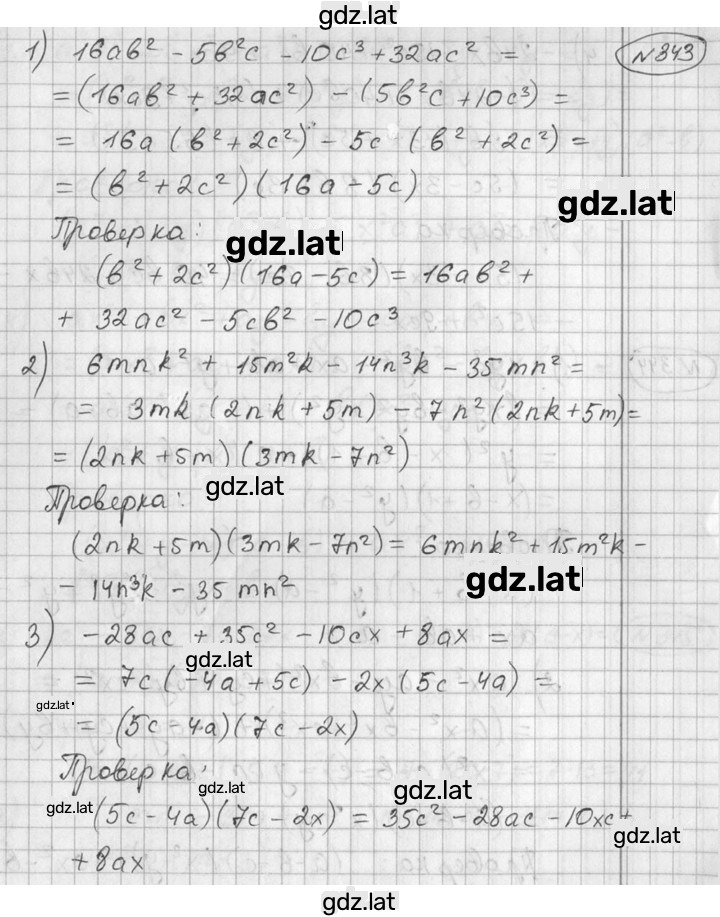 gdz.lat
1) 16ab² - 5b²c - 10c³ + 32ac² =
№843
= (16ab² + 32ac²) - (5b²c + 10c³) =
= 16a (b² + 2c²) - 5c (b² + 2c²) =
= (b² + 2c²)(16a - 5c)
gdz.lat
Проверка:
gdz.lat
(b² + 2c²)(16a - 5c) = 16ab² +
+ 32ac² - 5cb² - 10c³
2) 6mnk² + 15m²k - 14n³k - 35mn² =
= 3mk (2nk + 5m) - 7n² (2nk + 5m) =
= (2nk + 5m)(3mk - 7n²)
gdz.lat
Проверка:
(2nk + 5m)(3mk - 7n²) = 6mnk² + 15m²k -
gdz.lat
- 14n³k - 35mn²
3) -28ac + 35c² - 10cx + 8ax =
gdz.lat
= 7c (-4a + 5c) - 2x (5c - 4a) =
gdz.lat
= (5c - 4a)(7c - 2x)
Проверка:
gdz.lat
gdz.lat
gdz.lat
(5c - 4a)(7c - 2x) = 35c² - 28ac - 10xc +
gdz.lat
+ 8ax
gdz.lat